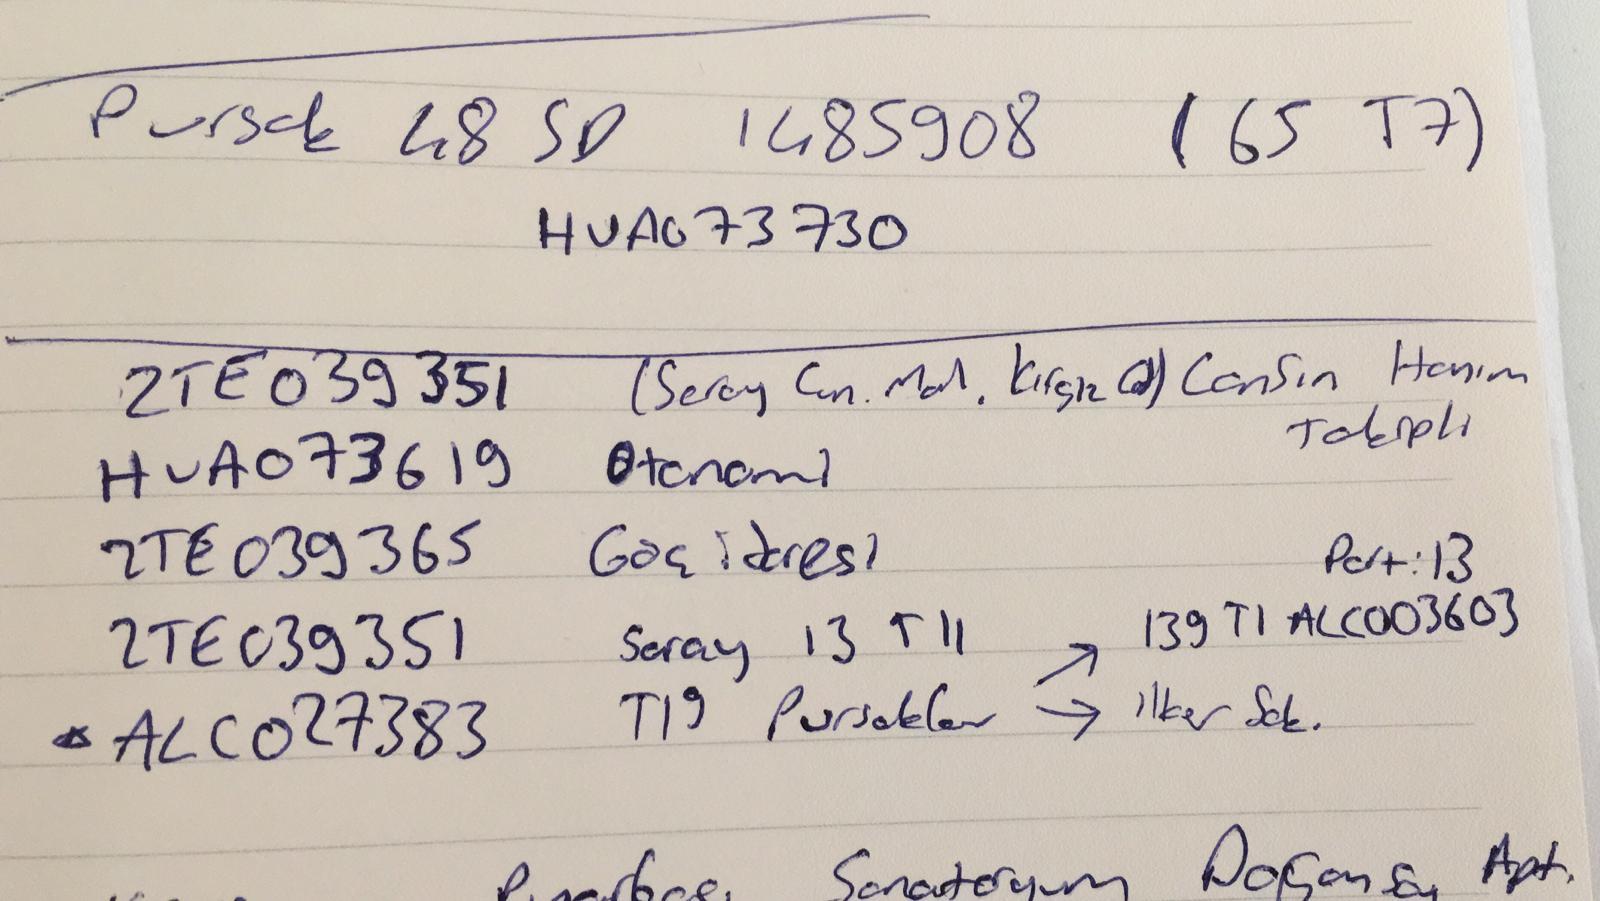 Pursak 48 SD 1485908 (65 T7)
HUA073730
2TE039351 (Saray Cun. Mah. Kırgız Cd) Cansın Hanım
Takipli
HUA073619 Otonomi
2TE039365 Göç idaresi
Port:13
2TE039351 Saray 13 T11
139 T1 ALC003603
ALC027383 T19 Pursaklar → ilker Sok.
Pınarbaşı Sanatoryum Doğansoy Apt.